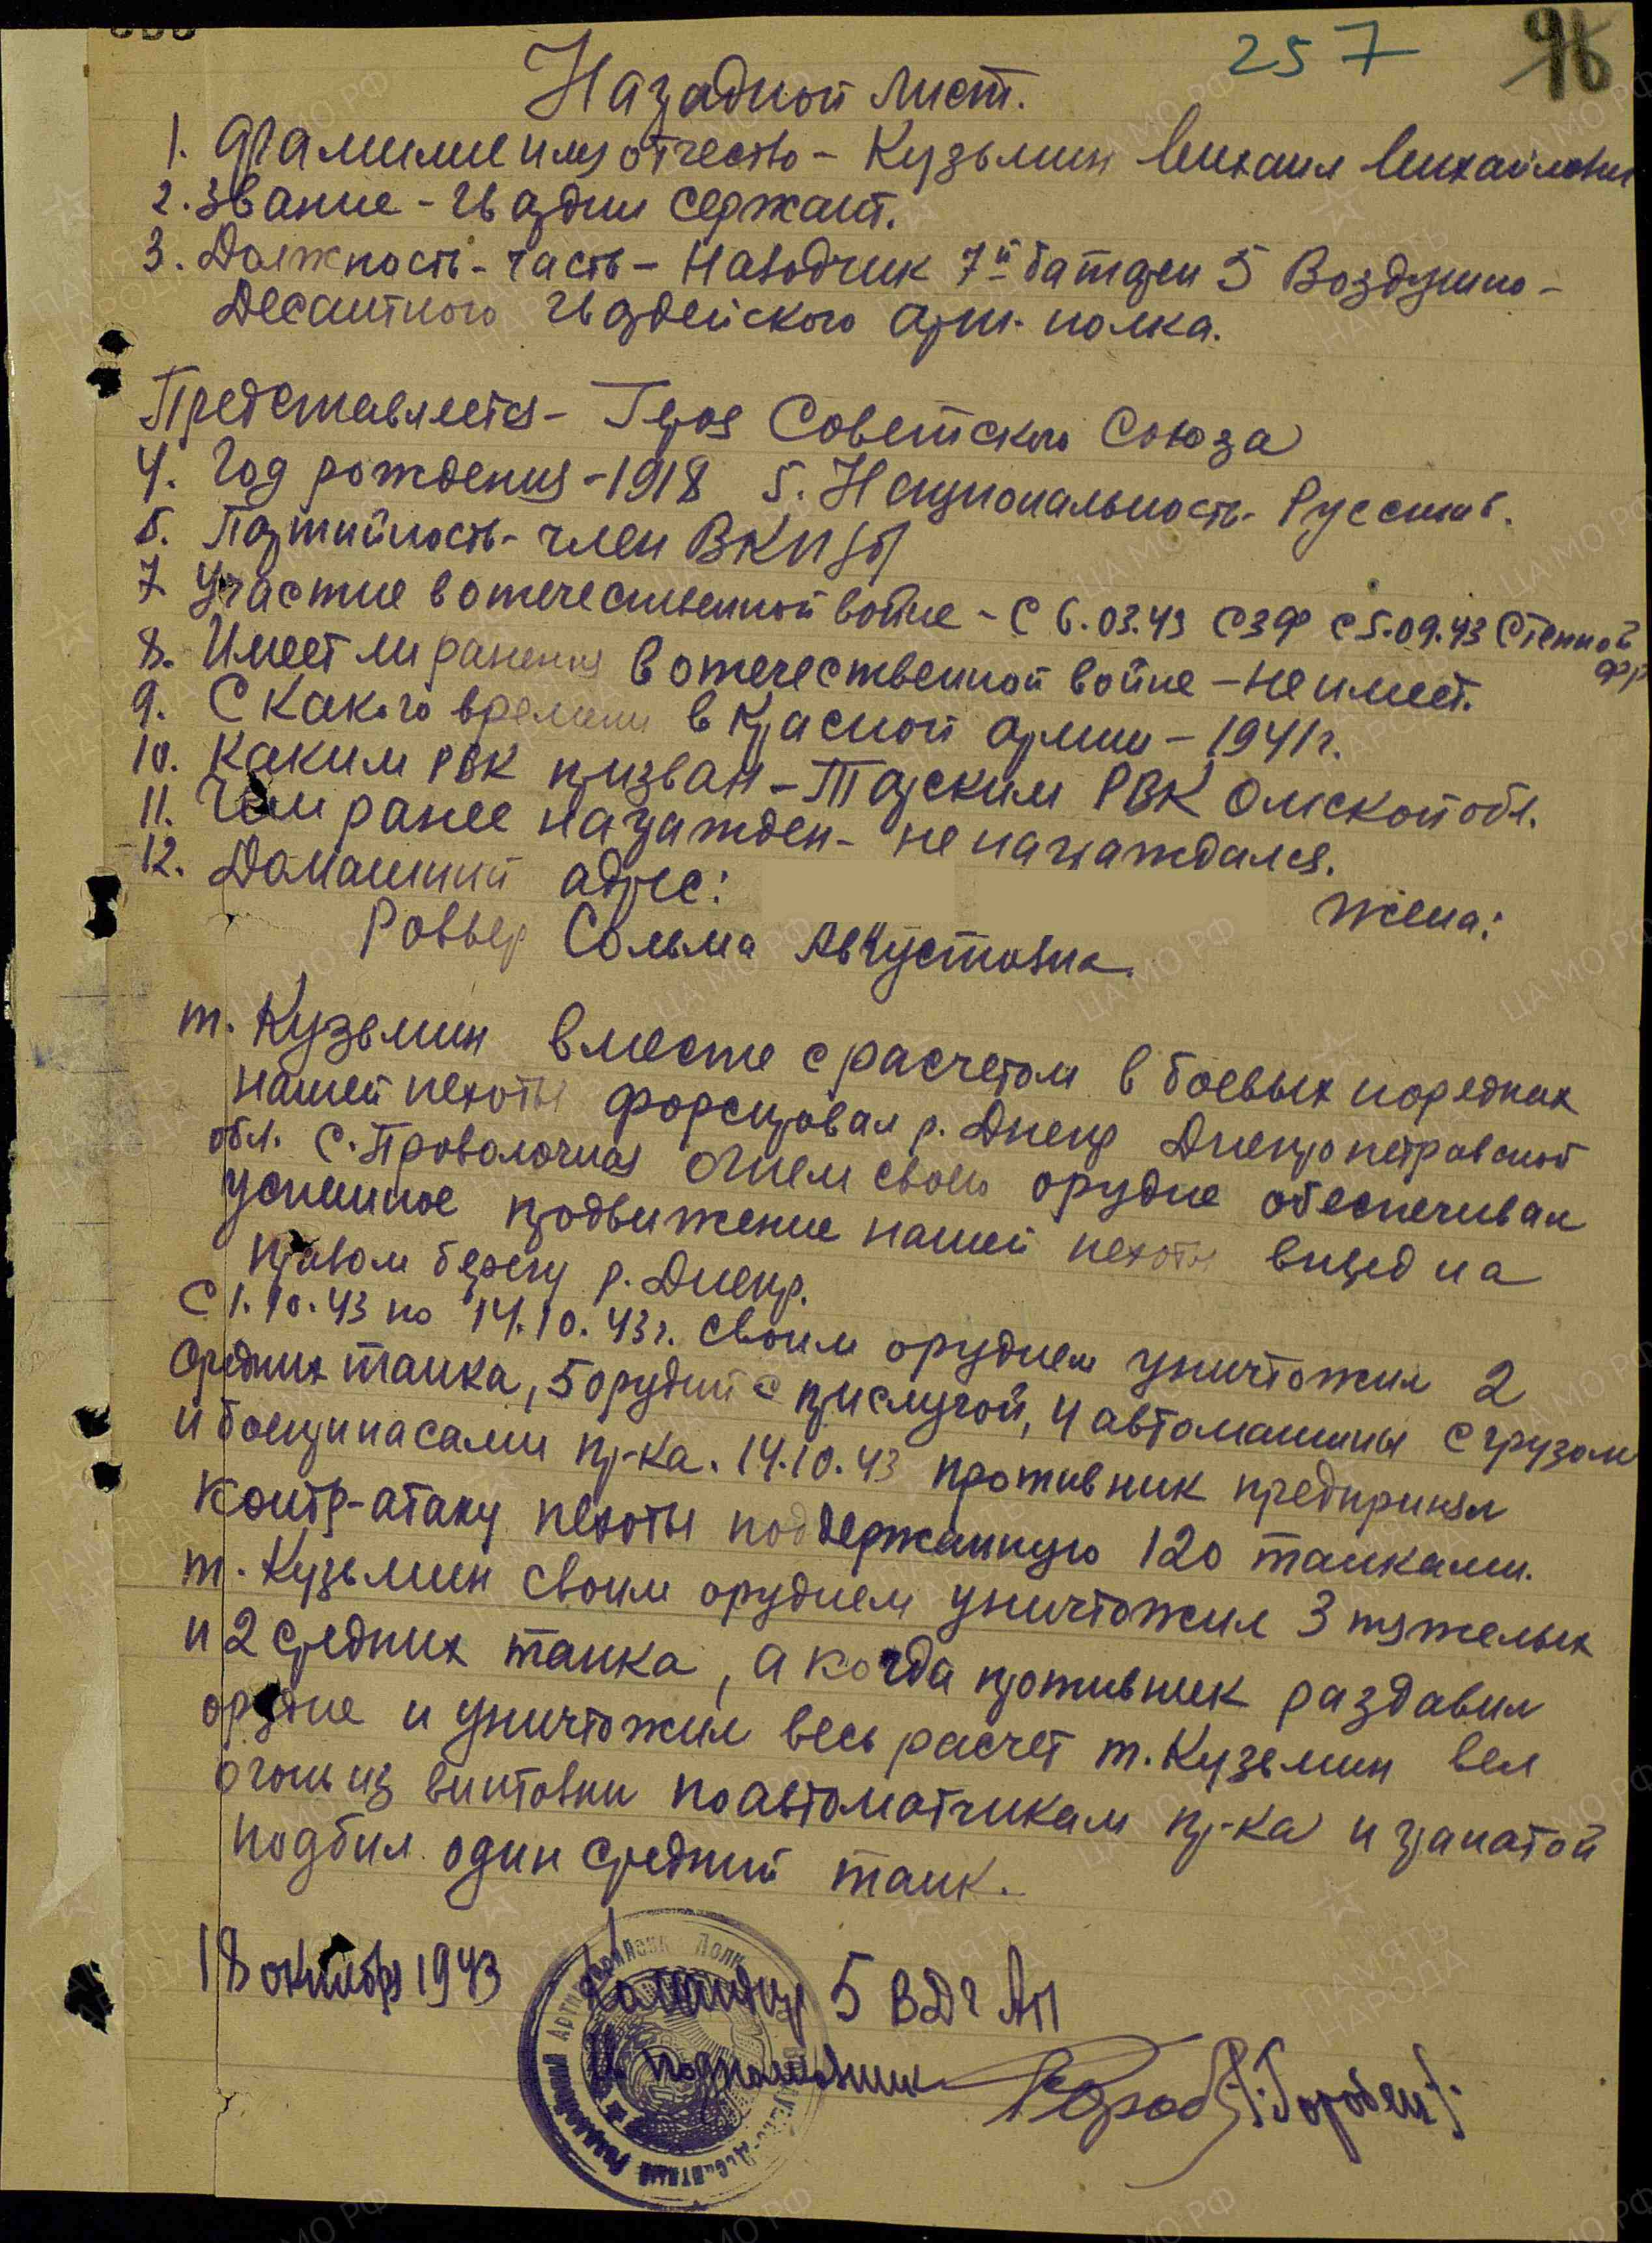 257 96
Наградной лист.
1. Фамилие имя отчество - Кузьмин Михаил Михайлович
2. Звание - Гвардии сержант.
3. Должность - часть - Наводчик 7й батареи 5 Воздушно-
Десантного Гвардейского арт. полка.
Представляется - Героя Советского Союза
4. Год рождения - 1918 5. Национальность - Русский.
6. Партийность - член ВКП(б)
7. Участие в отечественной войне - С 6.03.43 СЗФ с 5.09.43 Степной
фр
8. Имеет ли ранения в отечественной войне - не имеет.
9. С какого времени в Красной армии - 1941 г.
10. Каким РВК призван - Тарским РВК Омской обл.
11. Чем ранее награжден - не награждался.
12. Домашний адрес: жена:
Сольма Августовна.
т. Кузьмин вместе с расчетом в боевых порядках
нашей пехоты форсировал р. Днепр Днепропетровской
обл. С. Проволочная огнем своего орудие обеспечивал
успешное продвижение нашей пехоты вперед на
правом берегу р. Днепр.
С 1.10.43 по 14.10.43 г. своим орудием уничтожил 2
средних танка, 5 орудий с прислугой, 4 автомашины с грузом
и боеприпасами пр-ка. 14.10.43 противник предпринял
контр-атаку пехоты поддержанную 120 танками.
т. Кузьмин своим орудием уничтожил 3 тяжелых
и 2 средних танка, а когда противник раздавил
орудие и уничтожил весь расчет т. Кузьмин вел
огонь из винтовки по автоматчикам пр-ка и гранатой
подбил один средний танк.
18 октября 1943 Командир 5 ВДГ АП
Гв. подполковник /Горобец/.